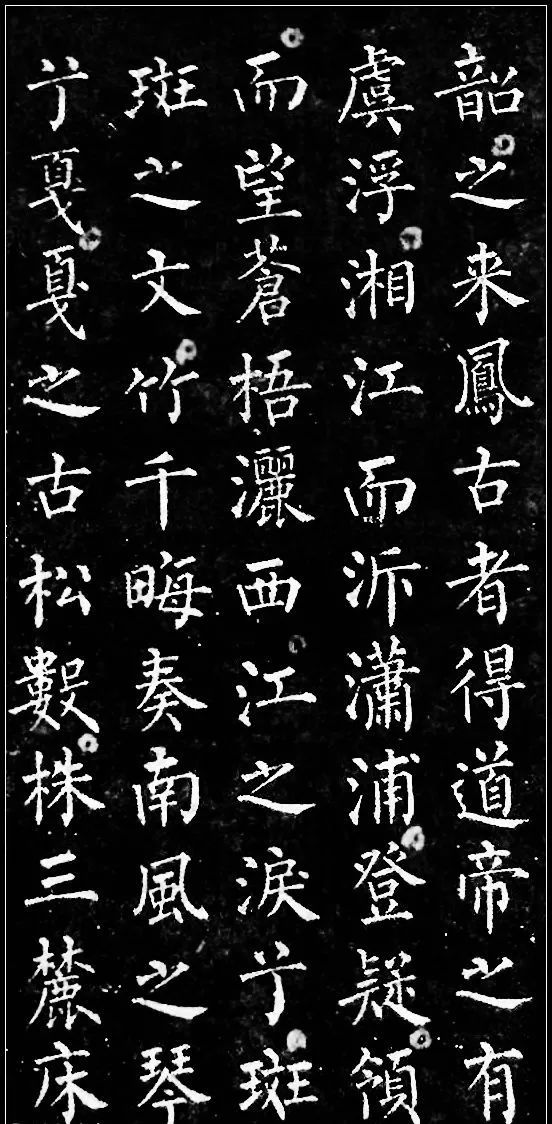 韶之来鳳古者得道帝之有
虞浮湘江而泝瀟浦登疑領
而望蒼梧灑西江之淚兮斑
斑之文竹千晦奏南風之琴
兮戛戛之古松數株三麓床